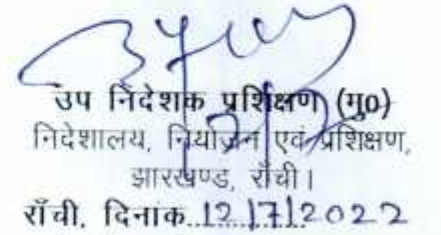 उप निदेशक प्रशिक्षण (मु०)
निदेशालय, नियोजन एवं प्रशिक्षण,
झारखण्ड, राँची।
राँची, दिनांक 12/7/2022